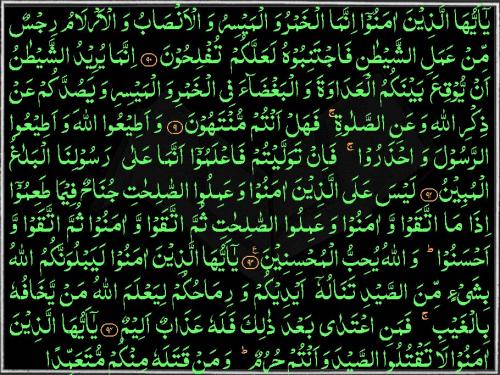 يٰۤاَيُّهَا الَّذِيْنَ اٰمَنُوْۤا اِنَّمَا الْخَمْرُ وَ الْمَيْسِرُ وَ الْاَنْصَابُ وَ الْاَزْلَامُ رِجْسٌ
مِّنْ عَمَلِ الشَّيْطٰنِ فَاجْتَنِبُوْهُ لَعَلَّكُمْ تُفْلِحُوْنَ ۹۰ اِنَّمَا يُرِيْدُ الشَّيْطٰنُ
اَنْ يُّوْقِعَ بَيْنَكُمُ الْعَدَاوَةَ وَ الْبَغْضَآءَ فِى الْخَمْرِ وَ الْمَيْسِرِ وَ يَصُدَّكُمْ عَنْ
ذِكْرِ اللّٰهِ وَ عَنِ الصَّلٰوةِ ۚ فَهَلْ اَنْتُمْ مُّنْتَهُوْنَ ۹۱ وَ اَطِيْعُوا اللّٰهَ وَ اَطِيْعُوا
الرَّسُوْلَ وَ احْذَرُوْا ۚ فَاِنْ تَوَلَّيْتُمْ فَاعْلَمُوْۤا اَنَّمَا عَلٰى رَسُوْلِنَا الْبَلٰغُ
الْمُبِيْنُ ۹۲ لَيْسَ عَلَى الَّذِيْنَ اٰمَنُوْا وَ عَمِلُوا الصّٰلِحٰتِ جُنَاحٌ فِيْمَا طَعِمُوْۤا
اِذَا مَا اتَّقَوْا وَّ اٰمَنُوْا وَ عَمِلُوا الصّٰلِحٰتِ ثُمَّ اتَّقَوْا وَّ اٰمَنُوْا ثُمَّ اتَّقَوْا وَّ
اَحْسَنُوْا ؕ وَ اللّٰهُ يُحِبُّ الْمُحْسِنِيْنَ ۹۳ يٰۤاَيُّهَا الَّذِيْنَ اٰمَنُوْا لَيَبْلُوَنَّكُمُ اللّٰهُ
بِشَىْءٍ مِّنَ الصَّيْدِ تَنَالُهٗۤ اَيْدِيْكُمْ وَ رِمَاحُكُمْ لِيَعْلَمَ اللّٰهُ مَنْ يَّخَافُهٗ
بِالْغَيْبِ ۚ فَمَنِ اعْتَدٰى بَعْدَ ذٰلِكَ فَلَهٗ عَذَابٌ اَلِيْمٌ ۹۴ يٰۤاَيُّهَا الَّذِيْنَ
اٰمَنُوْا لَا تَقْتُلُوا الصَّيْدَ وَ اَنْتُمْ حُرُمٌ ؕ وَ مَنْ قَتَلَهٗ مِنْكُمْ مُّتَعَمِّدًا